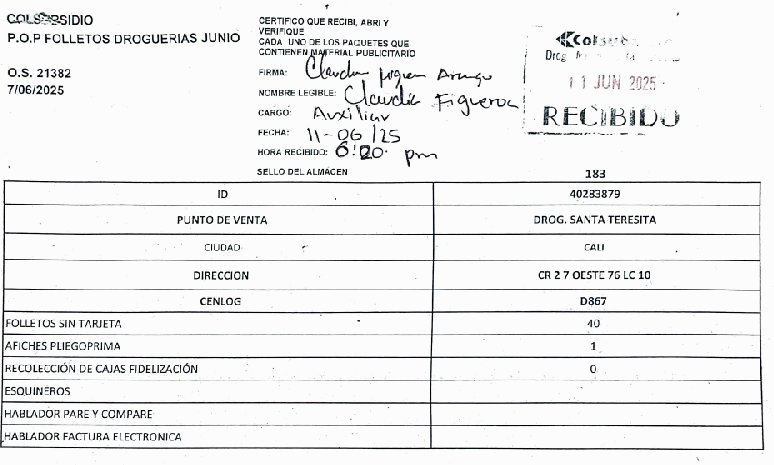 COLSUBSIDIO
P.O.P FOLLETOS DROGUERIAS JUNIO
O.S. 21382
7/06/2025
CERTIFICO QUE RECIBI, ABRI Y
VERIFIQUE
CADA UNO DE LOS PAQUETES QUE
CONTIENEN MATERIAL PUBLICITARIO
FIRMA: Claudia
NOMBRE LEGIBLE: Claudia Figueroa
CARGO: Auxiliar
FECHA: 11-06/25
HORA RECIBIDO: 6:20 pm
SELLO DEL ALMACEN
11 JUN 2025
RECIBIDO
183
ID 40283879
PUNTO DE VENTA DROG. SANTA TERESITA
CIUDAD CALI
DIRECCION CR 2 7 OESTE 76 LC 10
CENLOG D867
FOLLETOS SIN TARJETA 40
AFICHES PLIEGOPRIMA 1
RECOLECCIÓN DE CAJAS FIDELIZACIÓN 0
ESQUINEROS
HABLADOR PARE Y COMPARE
HABLADOR FACTURA ELECTRONICA